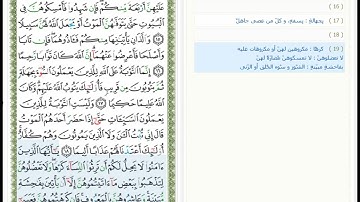 عَلَيْهِنَّ أَرْبَعَةً مِّنكُمْ فَإِن شَهِدُوا۟ فَأَمْسِكُوهُنَّ فِى
ٱلْبُيُوتِ حَتَّىٰ يَتَوَفَّىٰهُنَّ ٱلْمَوْتُ أَوْ يَجْعَلَ ٱللَّهُ لَهُنَّ
سَبِيلًا ١٥ وَٱلَّذَانِ يَأْتِيَٰنِهَا مِنكُمْ فَـَٔاذُوهُمَا فَإِن تَابَا
وَأَصْلَحَا فَأَعْرِضُوا۟ عَنْهُمَآ إِنَّ ٱللَّهَ كَانَ تَوَّابًا رَّحِيمًا
١٦ إِنَّمَا ٱلتَّوْبَةُ عَلَى ٱللَّهِ لِلَّذِينَ يَعْمَلُونَ ٱلسُّوٓءَ
بِجَهَٰلَةٍ ثُمَّ يَتُوبُونَ مِن قَرِيبٍ فَأُو۟لَٰٓئِكَ يَتُوبُ ٱللَّهُ عَلَيْهِمْ وَكَانَ
ٱللَّهُ عَلِيمًا حَكِيمًا ١٧ وَلَيْسَتِ ٱلتَّوْبَةُ لِلَّذِينَ
يَعْمَلُونَ ٱلسَّيِّـَٔاتِ حَتَّىٰٓ إِذَا حَضَرَ أَحَدَهُمُ ٱلْمَوْتُ
قَالَ إِنِّى تُبْتُ ٱلْـَٰٔنَ وَلَا ٱلَّذِينَ يَمُوتُونَ وَهُمْ كُفَّارٌ
أُو۟لَٰٓئِكَ أَعْتَدْنَا لَهُمْ عَذَابًا أَلِيمًا ١٨ يَٰٓأَيُّهَا ٱلَّذِينَ
ءَامَنُوا۟ لَا يَحِلُّ لَكُمْ أَن تَرِثُوا۟ ٱلنِّسَآءَ كَرْهًا وَلَا تَعْضُلُوهُنَّ
لِتَذْهَبُوا۟ بِبَعْضِ مَآ ءَاتَيْتُمُوهُنَّ إِلَّآ أَن يَأْتِينَ بِفَٰحِشَةٍ
(16)
(17) بجهالة : بسفه ، و كلّ من عصى جاهلٌ
(18)
(19) كرها : مكرهين لهنّ أو مكروهات عليه
لا تعضلوهنّ : لا تمسكوهنّ مضارّة لهنّ
بفاحشة مبيّنة : النّشوز و سوء الخُلق أو الزّنى